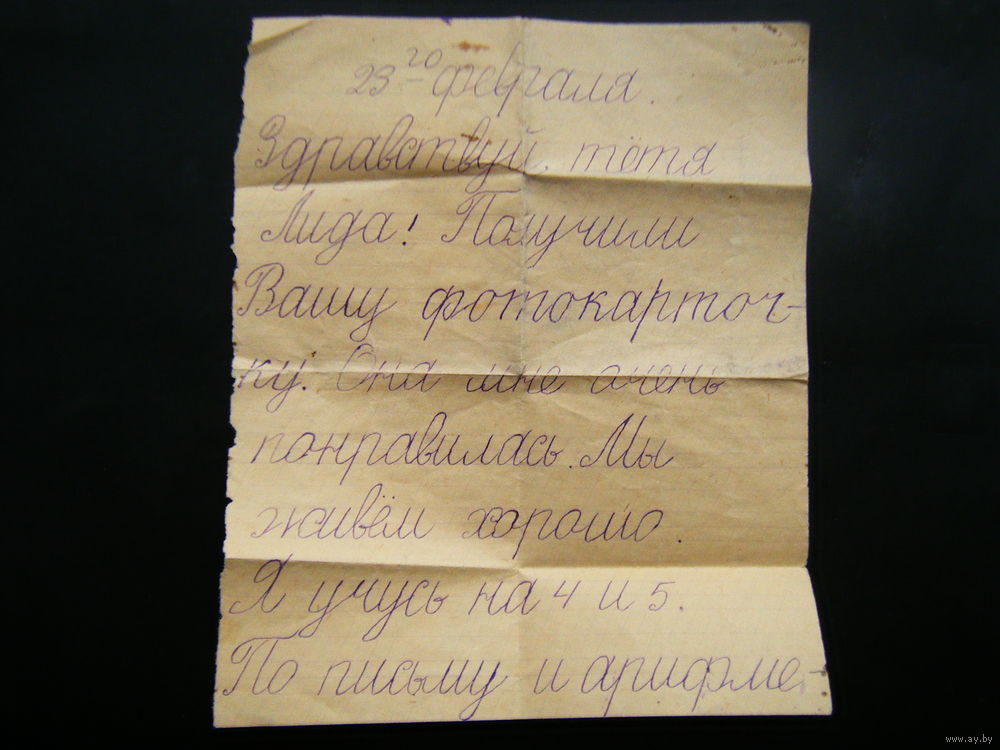 23го февраля.
Здравствуй тётя
Лида! Получили
Вашу фотокарточ-
ку. Она мне очень
понравилась. Мы
живём хорошо.
Я учусь на 4 и 5.
По письму и арифме-
www.ay.by